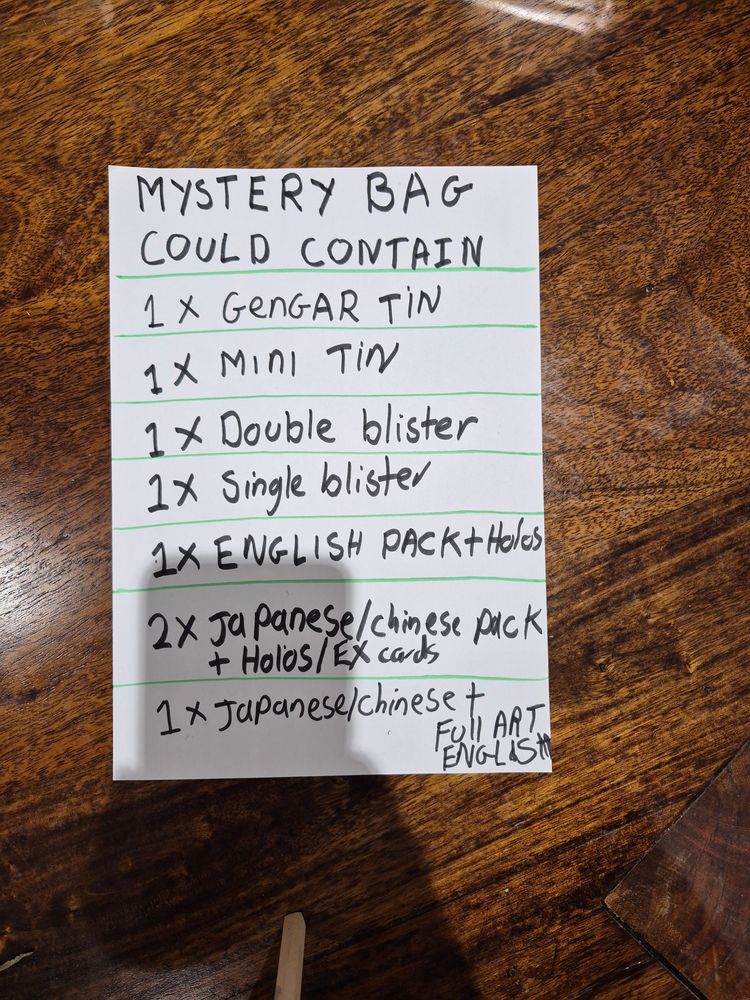 MYSTERY BAG
COULD CONTAIN
1 X GENGAR TIN
1 X MINI TIN
1 X Double blister
1 X Single blister
1 X ENGLISH PACK + Holos
2 X Japanese/chinese pack
+ Holos/EX cards
1 X Japanese/chinese +
Full ART
ENGLISH